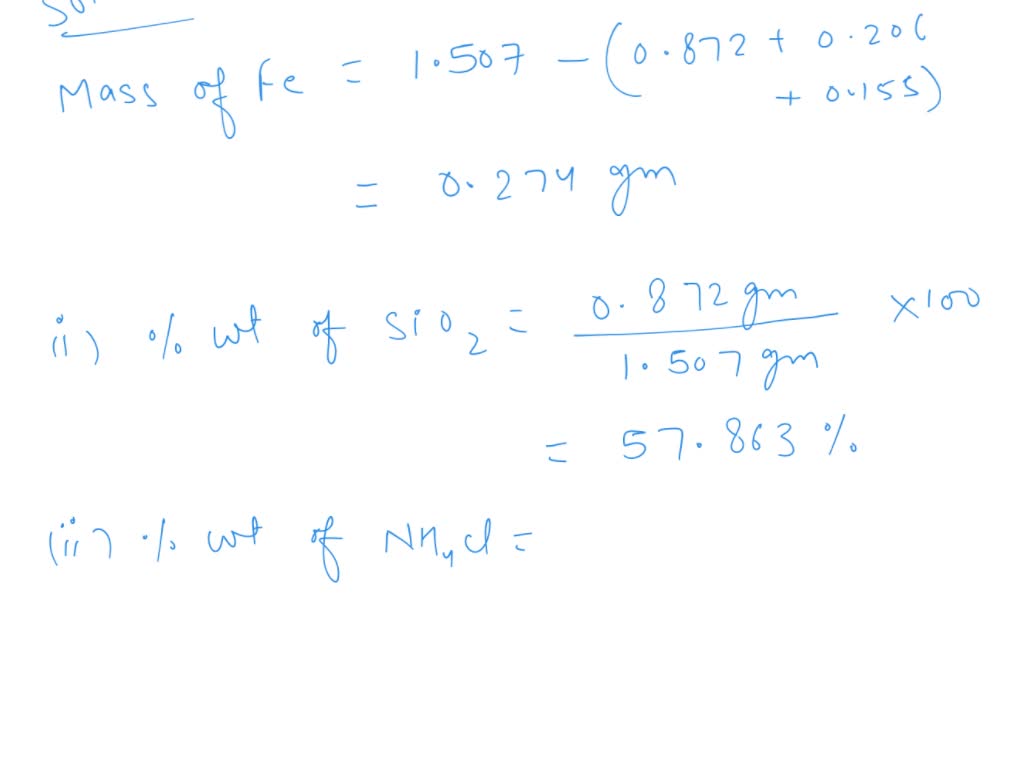 Mass of Fe = 1.507 - (0.872 + 0.206
+ 0.155)
= 0.274 gm
ii) % wt of SiO2 = 0.872 gm / 1.507 gm ×100
= 57.863 %
(ii) % wt of NH4Cl =